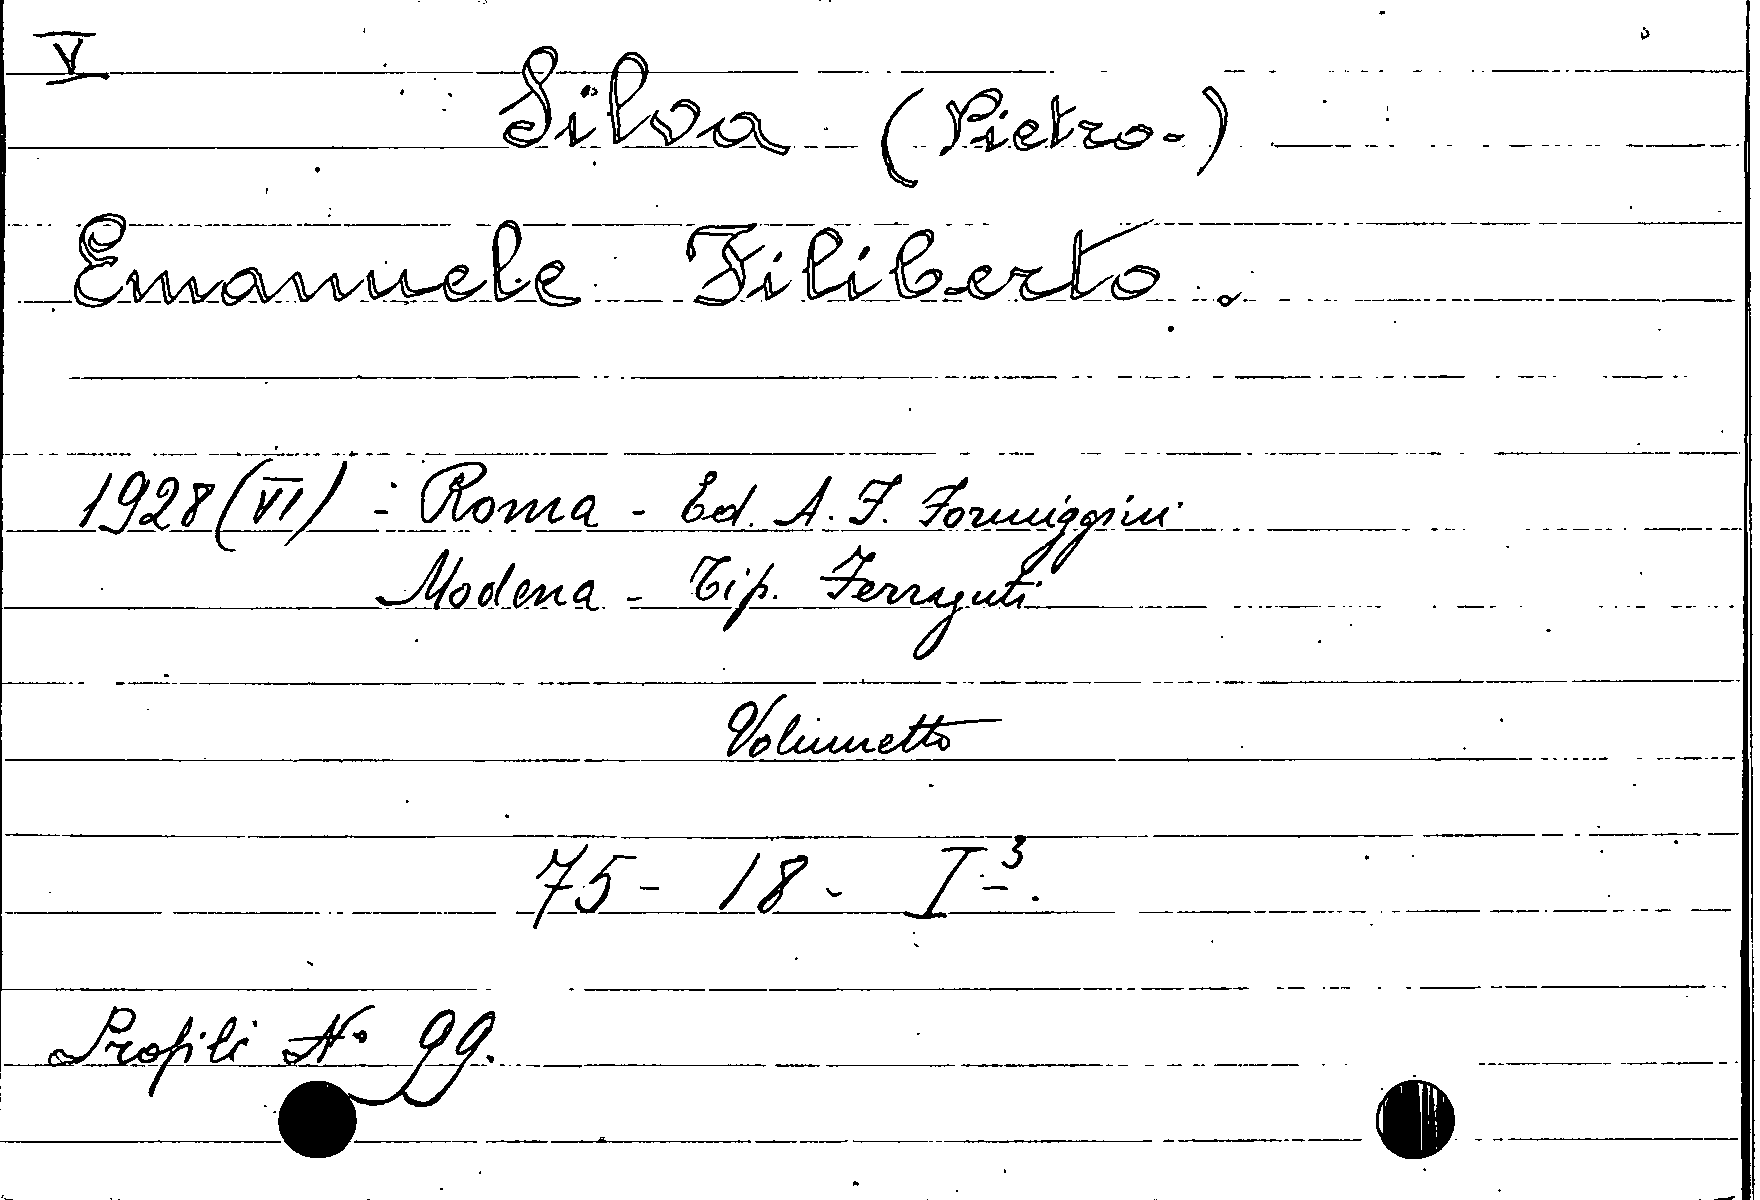 V
Silva (Pietro-)
Emanuele Filiberto.
1928 (VI) - Roma - Ed. A. F. Formiggini
Modena - Tip. Ferraguti
Volumetto
75 - 18 - I-³.
Profili N° 99.